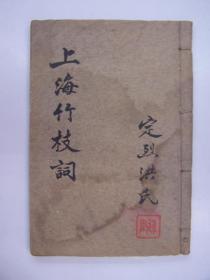 上海竹枝詞
定烈洪氏